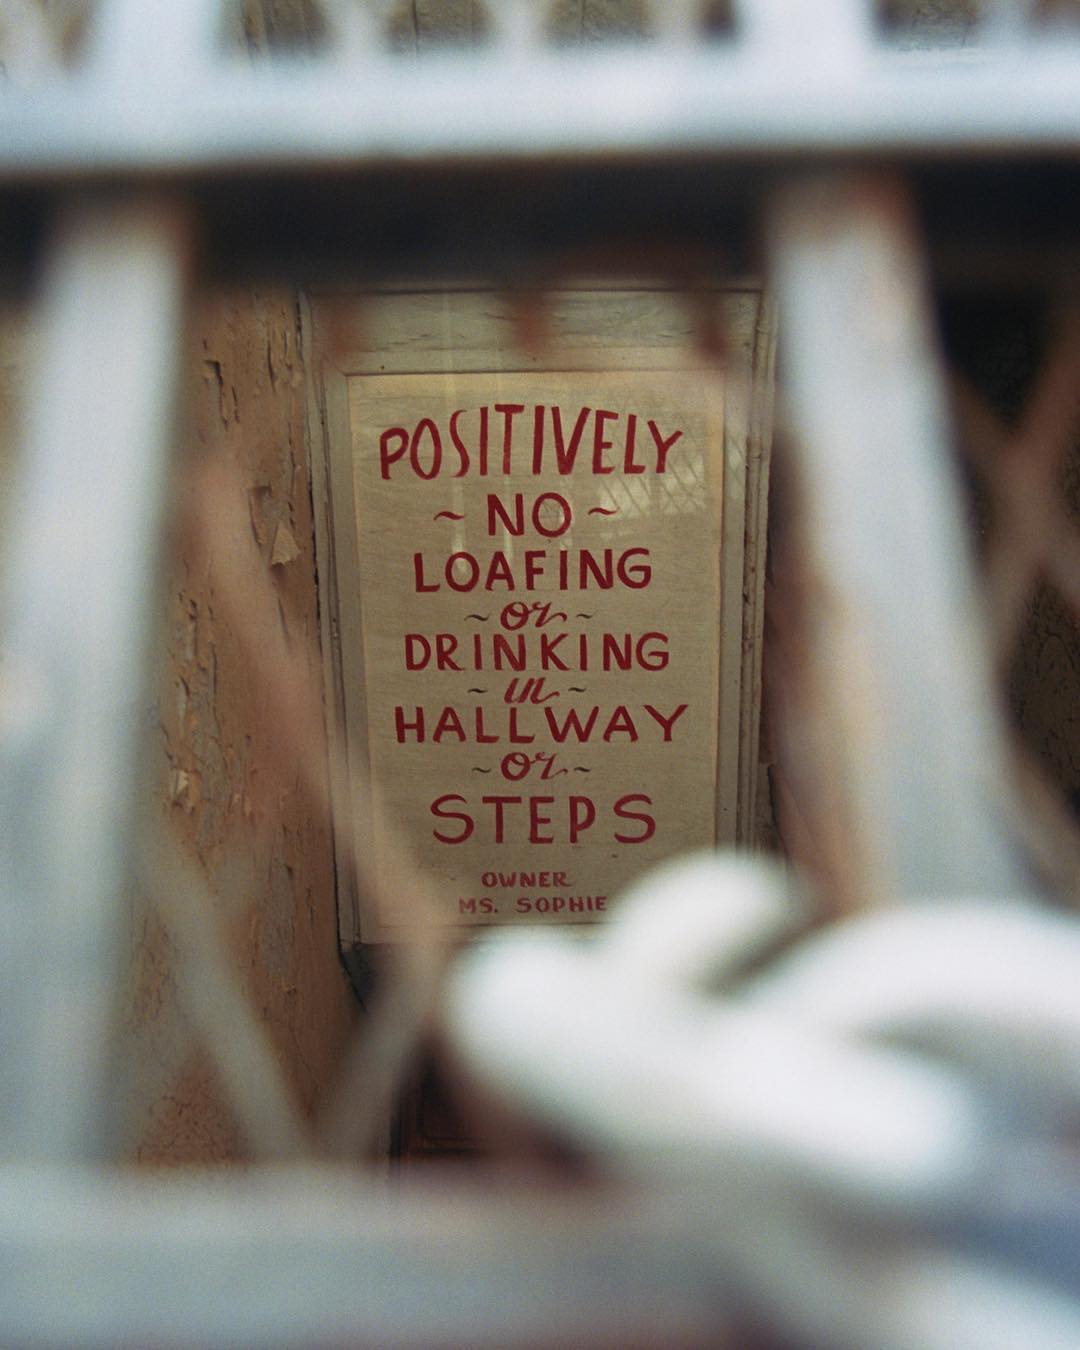 POSITIVELY
~ NO ~
LOAFING
~ or ~
DRINKING
~ in ~
HALLWAY
~ or ~
STEPS
OWNER
MS. SOPHIE